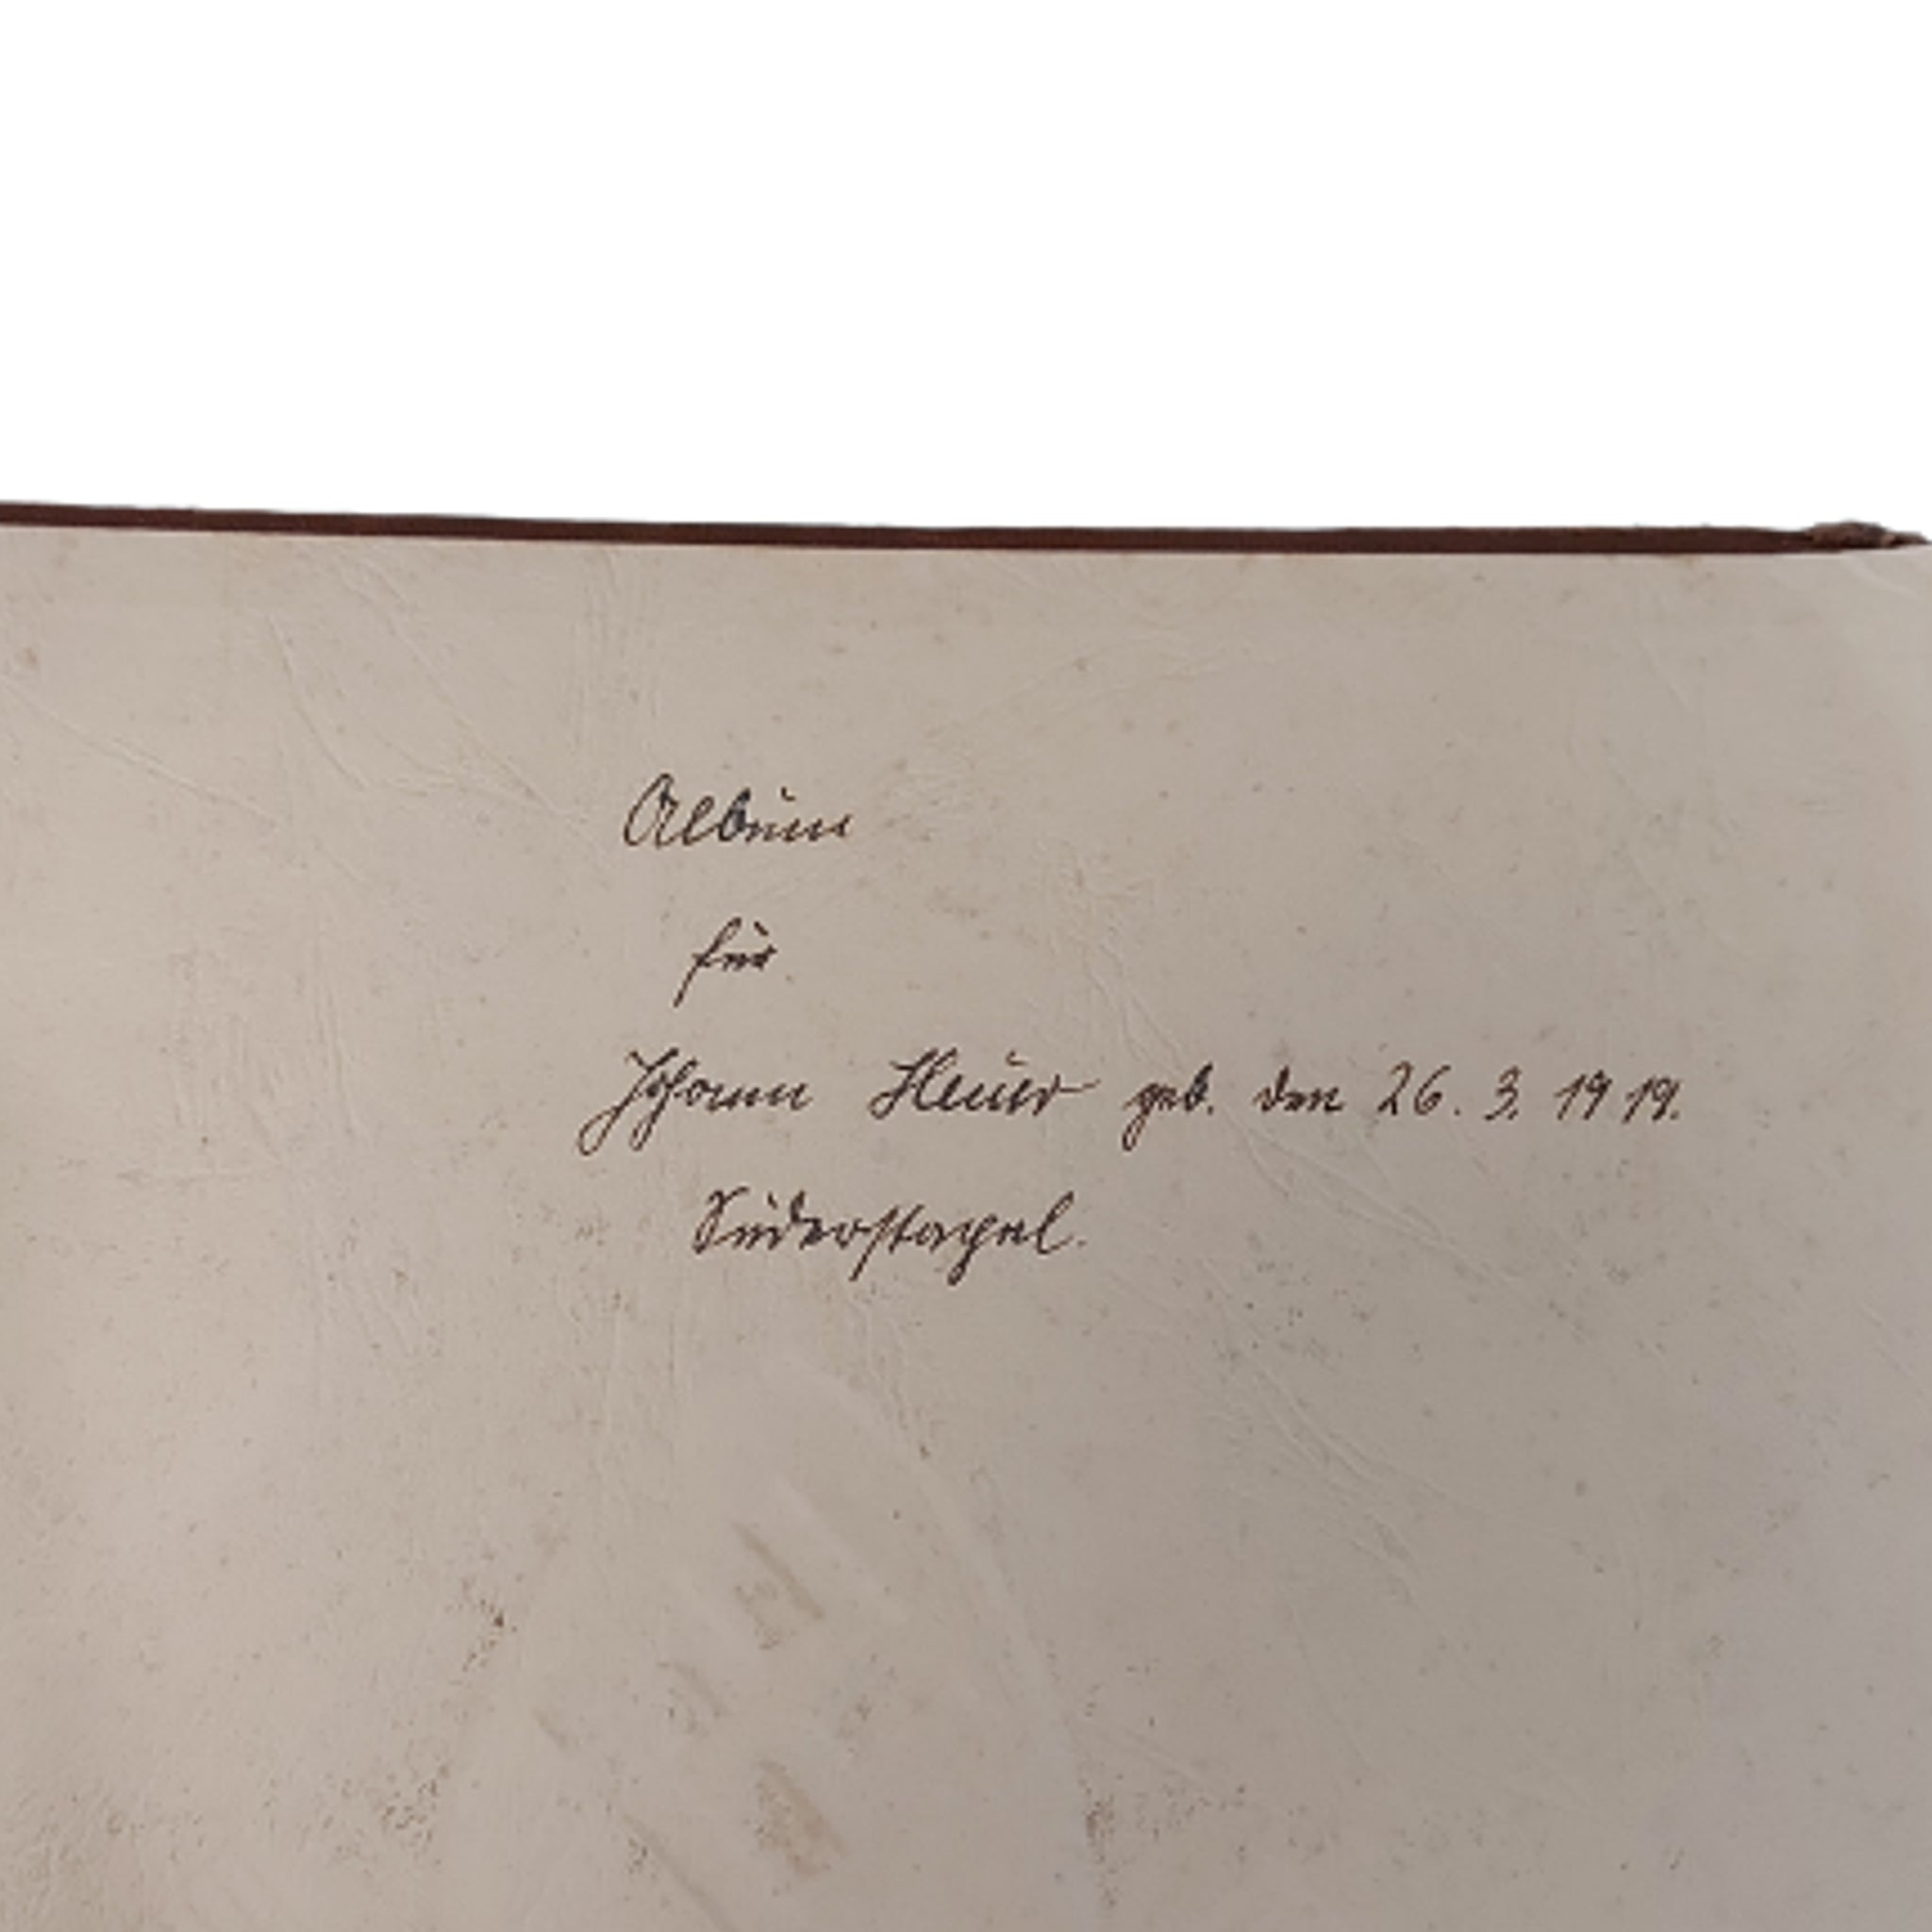 Album
für
Johann Heuer geb. den 26. 3. 1919.
Süderstapel.